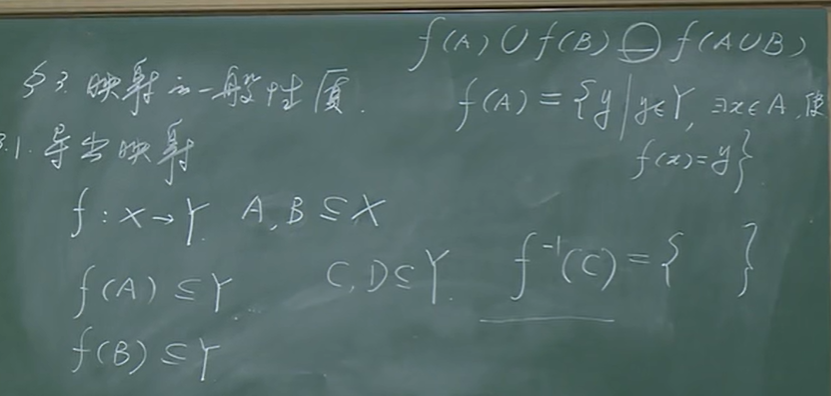 §3. 映射的一般性质.
3.1. 导出映射
f: X→Y. A, B ⊆ X
f(A) ⊆ Y
f(B) ⊆ Y
C, D ⊆ Y.
f(A) ∪ f(B) = f(A∪B)
f(A) = {y | y∈Y, ∃x∈A, 使
f(x)=y}
f⁻¹(C) = { }